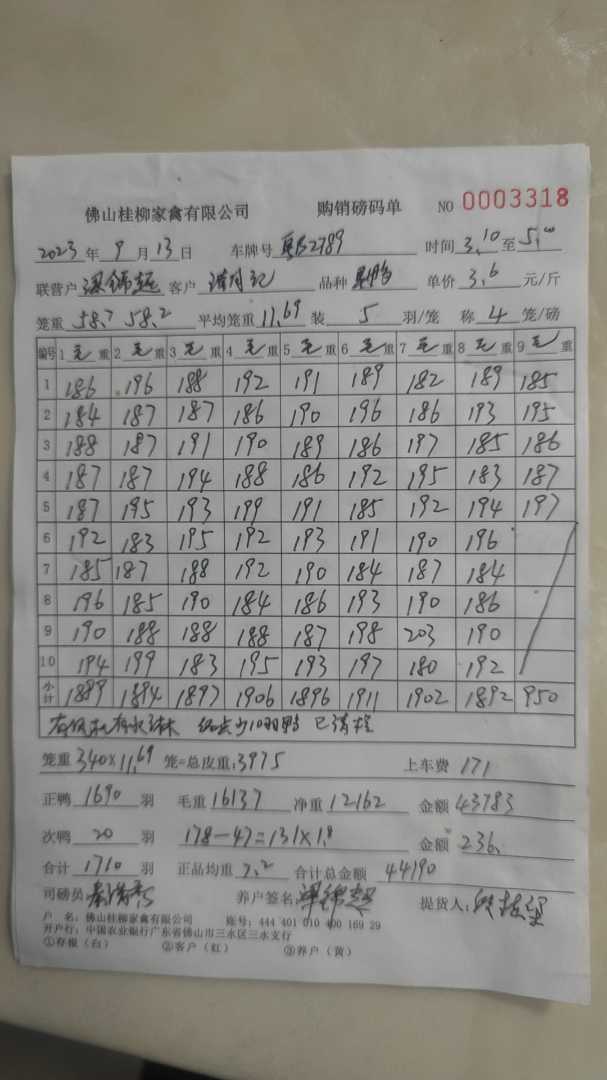 佛山桂柳家禽有限公司 购销磅码单 NO 0003318
2023 年 9 月 13 日 车牌号 2789 时间 3.10 至 5.00
联营户 梁锦超 客户 品种 单价 3.6 元/斤
笼重 58.7 58.2 平均笼重 11.69 装 5 羽/笼 称 4 笼/磅
编号 1 毛重 2 毛重 3 毛重 4 毛重 5 毛重 6 毛重 7 毛重 8 毛重 9 毛重
1 186 196 188 192 191 189 182 189 185
2 184 187 187 186 190 196 186 193 195
3 188 187 191 190 189 186 197 185 186
4 187 187 194 188 186 192 195 183 187
5 187 195 193 199 191 185 192 194 197
6 192 183 195 192 193 191 190 196
7 185 187 188 192 190 184 187 184
8 196 185 190 184 186 193 190 186
9 190 188 188 188 187 198 203 190
10 194 199 183 195 193 197 180 192
小计 1889 1894 1897 1906 1896 1911 1902 1892 950
少10羽鸭 已清栏
笼重 340×11.69 笼=总皮重: 3975 上车费 171
正鸭 1690 羽 毛重 16137 净重 12162 金额 43783
次鸭 20 羽 178-47=131×1.8 金额 236.
合计 1710 羽 正品均重 7.2 合计总金额 44190
司磅员 养户签名: 梁锦超 提货人:
户 名: 佛山桂柳家禽有限公司 账号: 444 401 010 400 169 29
开户行: 中国农业银行广东省佛山市三水区三水支行
①存根(白) ②客户(红) ③养户(黄)